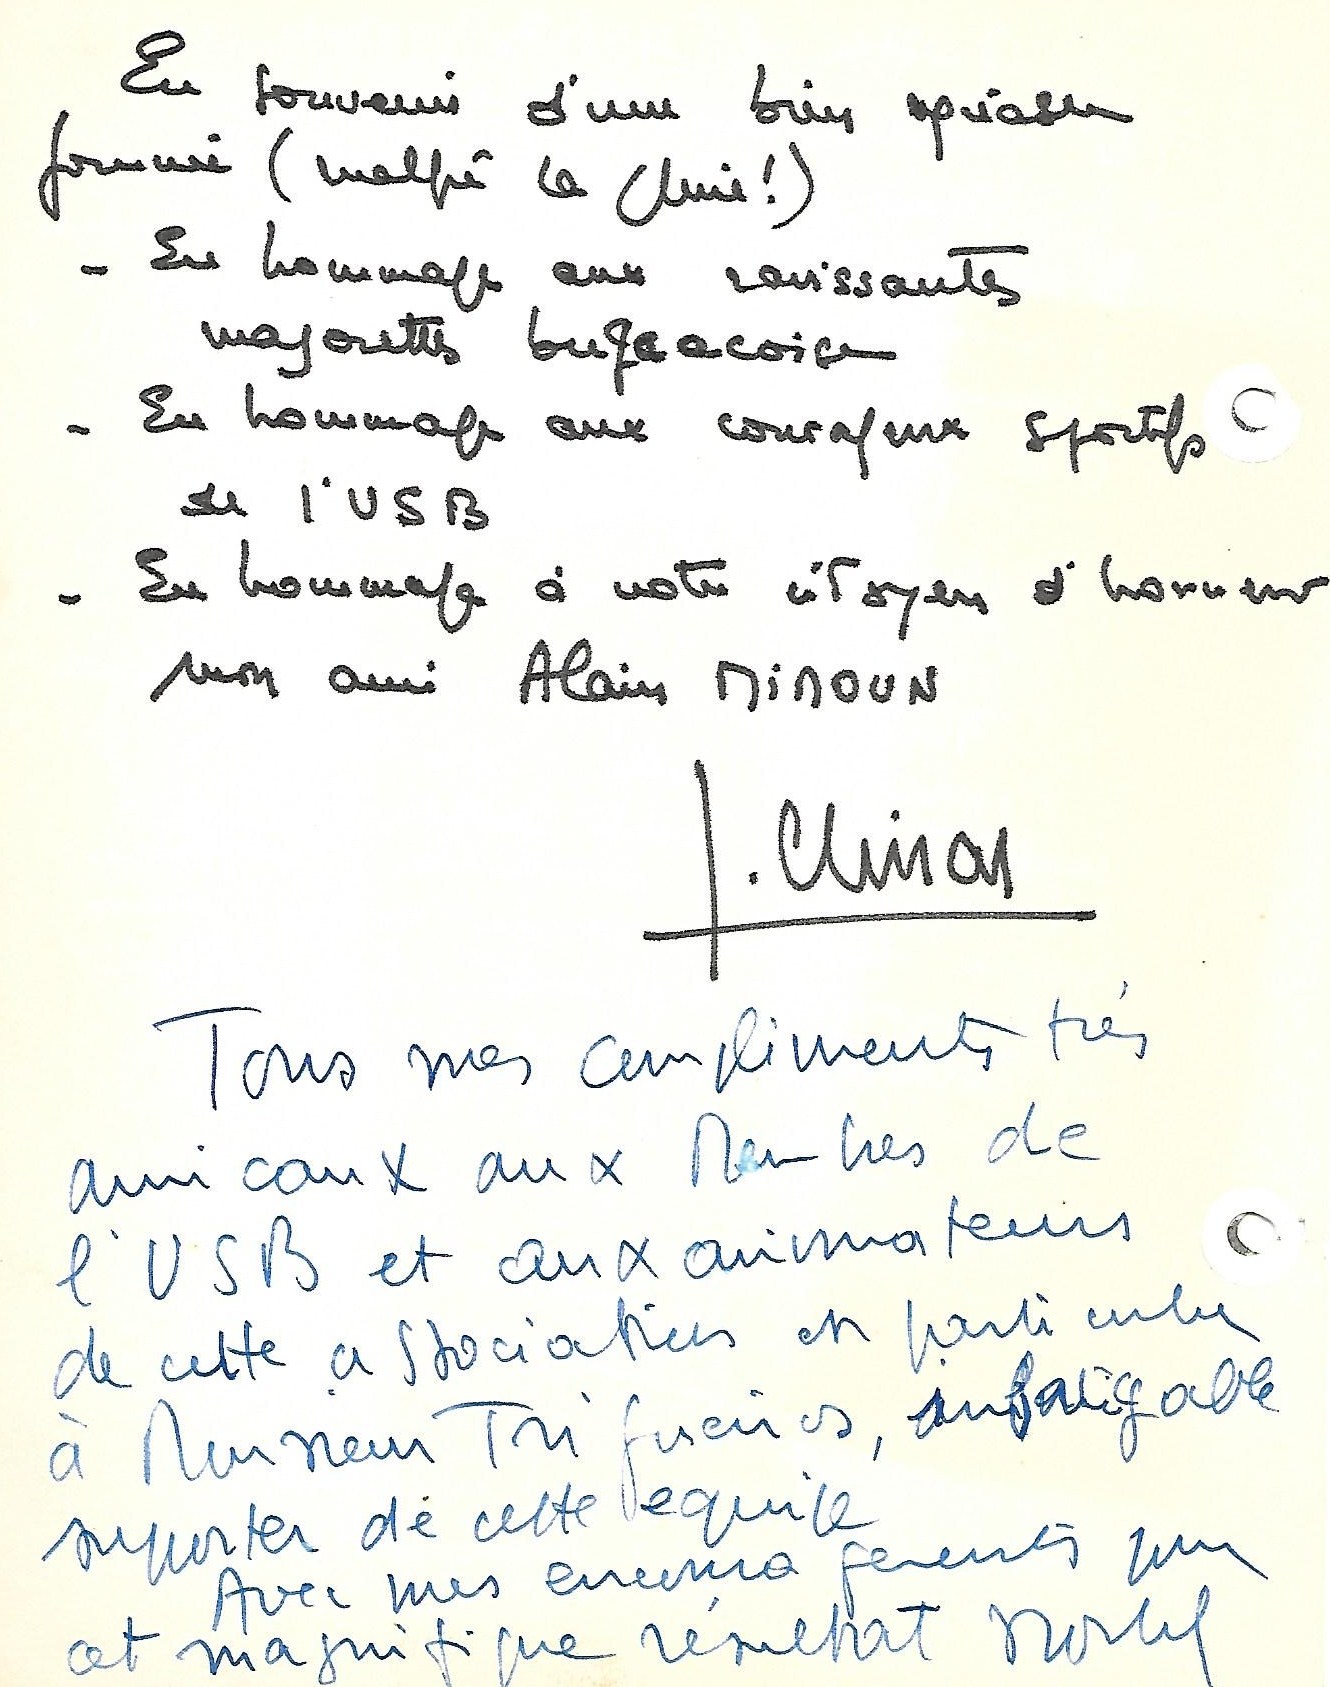 En souvenir d'une bien agréable
journée (malgré la pluie!)
- En hommage aux ravissantes
majorettes
- En hommage aux courageux sportifs
de l'USB
- En hommage à notre citoyen d'honneur
mon ami Alain MIMOUN
J. Chinon
Tous mes compliments très
amicaux aux Membres de
l'USB et aux animateurs
de cette association en particulier
à Monsieur infatigable
supporter de cette équipe
Avec mes encouragements pour
cet magnifique résultat